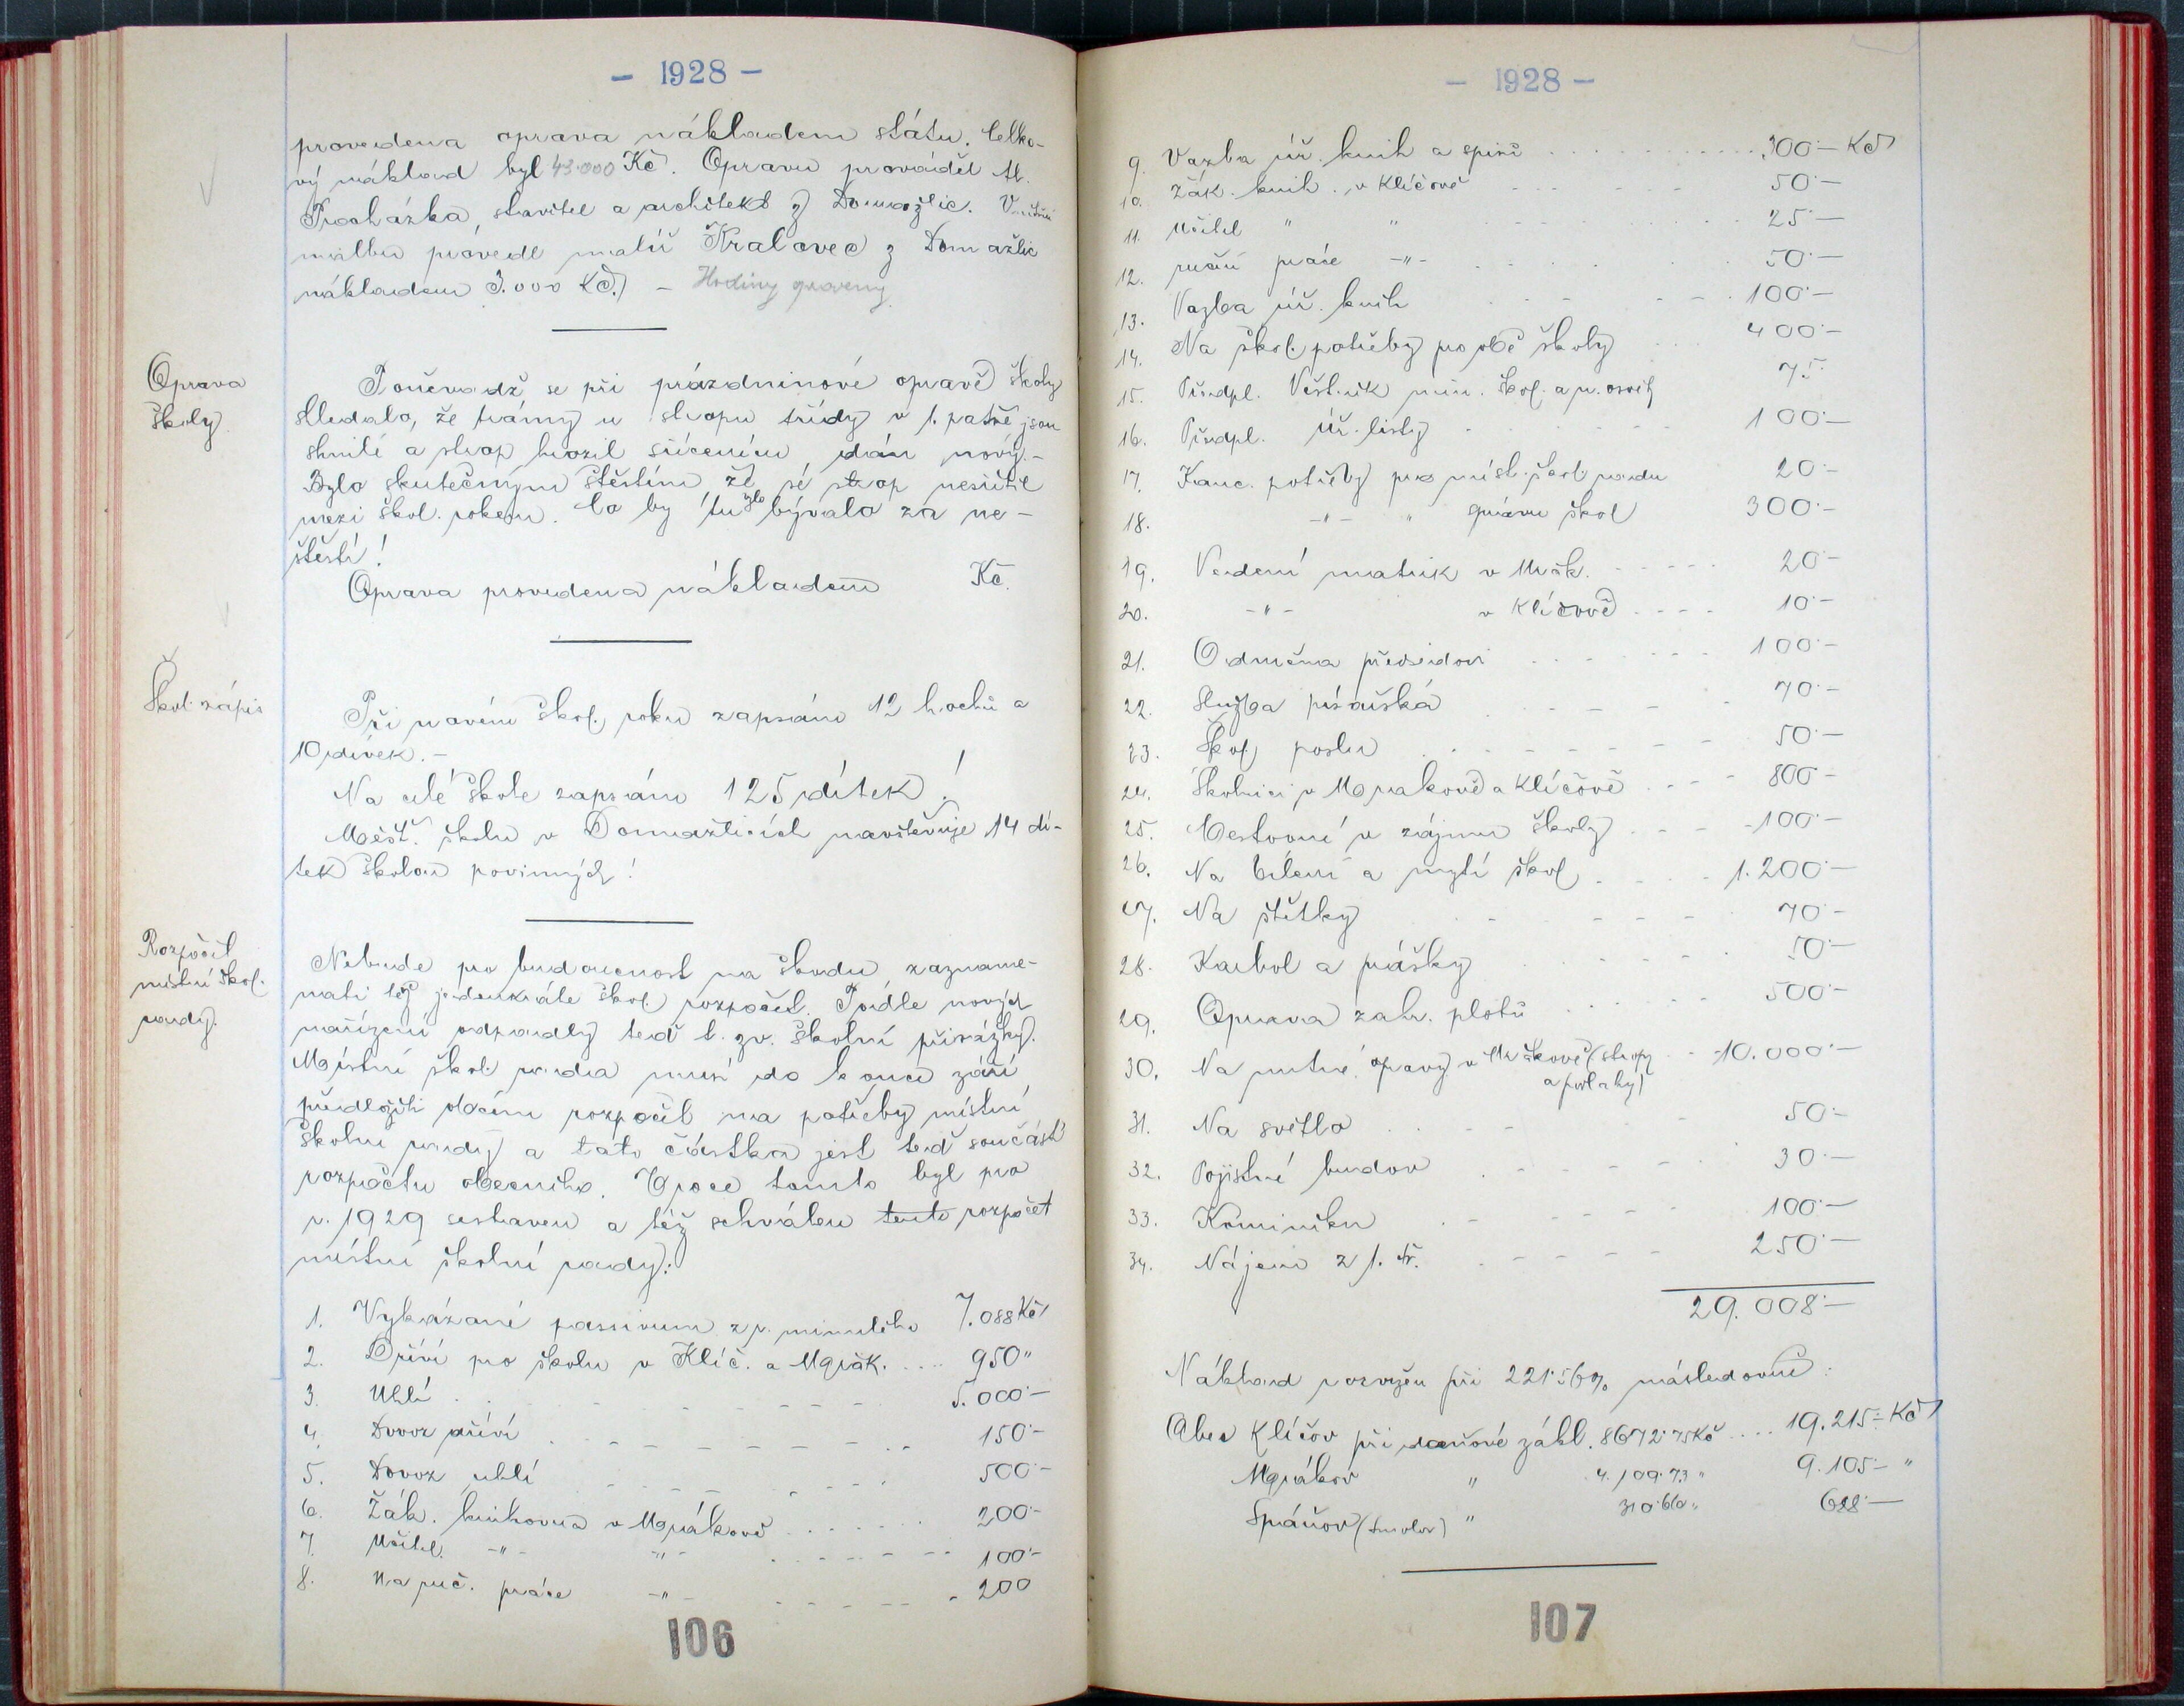 - 1928 -
provedena oprava nákladem státu. Celko-
vý náklad byl 43.000 Kč. Opravu prováděl
Procházka, stavitel a architekt z Domažlic.
malbu provedl malíř Královec z Domažlic
nákladem 3.000 Kč. - Hodiny opraveny
Oprava
školy.
Poněvadž se při prázdninové opravě školy
shledalo, že trámy u stropu třídy v 1. patře jsou
shnilé a strop hrozil sřícením dán nový.-
Bylo skutečným štěstím že se strop nesřítil
mezi škol. rokem. Co by tu bylo bývalo za ne-
štěstí!
Oprava provedena nákladem Kč.
Škol. zápis
Při novém škol. roku zapsáno 12 hochů a
10 dívek.-
Na celé škole zapsáno 125 dítek!
Měšť. školu v Domažlicích navštěvuje 14 dí-
tek školou povinných!
Rozpočet
místní škol.
rady.
Nebude pro budoucnost na škodu zazname-
nati též jedenkráte škol. rozpočet. Podle nových
nařízení odpadly teď t. zv. školní přirážky.
Místní škol. rada musí do konce září
předložiti obcím rozpočet na potřeby místní
školní rady a tato částka jest teď součástí
rozpočtu obecního. V roce tomto byl pro
r. 1929 sestaven a též schválen tento rozpočet
místní školní rady:
1. Vykázané passivum z r. minulého 7.088 Kč
2. Dříví pro školu v Klíč. a Mrák. .... 950 "
3. Uhlí 5.000.-
4. Dovoz dříví 150.-
5. Dovoz uhlí 500.-
6. Žák. knihovna v Mrákově 200.-
7. Učitel. -"- -"- 100.-
8. Na ruč. práce -"- 200
106
- 1928 -
9. Vazba úř. knih a spisů 300.- Kč
10. Žák. knih. v Klíčově 50.-
11. Učitel " " 25.-
12. ruční práce -"- 50.-
13. Vazba úř. knih 100.-
14. Na škol. potřeby pro obě školy 400.-
15. Předpl. Věstník min. škol. a n. osvěty 75.-
16. Předpl. Úř. listy 100.-
17. Kanc. potřeby pro míst. škol. radu 20.-
18. -"- " správu škol 300.-
19. Vedení matrik v Mrák. 20.-
20. -"- v Klíčově 10.-
21. Odměna předsedovi 100.-
22. Služba písařská 70.-
23. Škol. poslu 50.-
24. Školnici v Mrakově a Klíčově 800.-
25. Cestovné v zájmu školy 100.-
26. Na bílení a mytí škol 1.200.-
27. Na štětky 70.-
28. Karbol a prášky 50.-
29. Oprava zahr. plotů 500.-
30. Na nutné opravy v Mrákově (stropy 10.000.-
a podlahy)
31. Na světlo 50.-
32. Pojistné budov 30.-
33. Kominíku 100.-
34. Nájem z 1. tř. 250.-
29.008.-
Náklad rozvržen při 221.56% následovně:
Obec Klíčov při daňové zákl. 8672.75 Kč .... 19.215.- Kč
Mrákov " 4.109.73 " 9.105.- "
Spáňov (Smolov) " 310.60 " 688.-
107